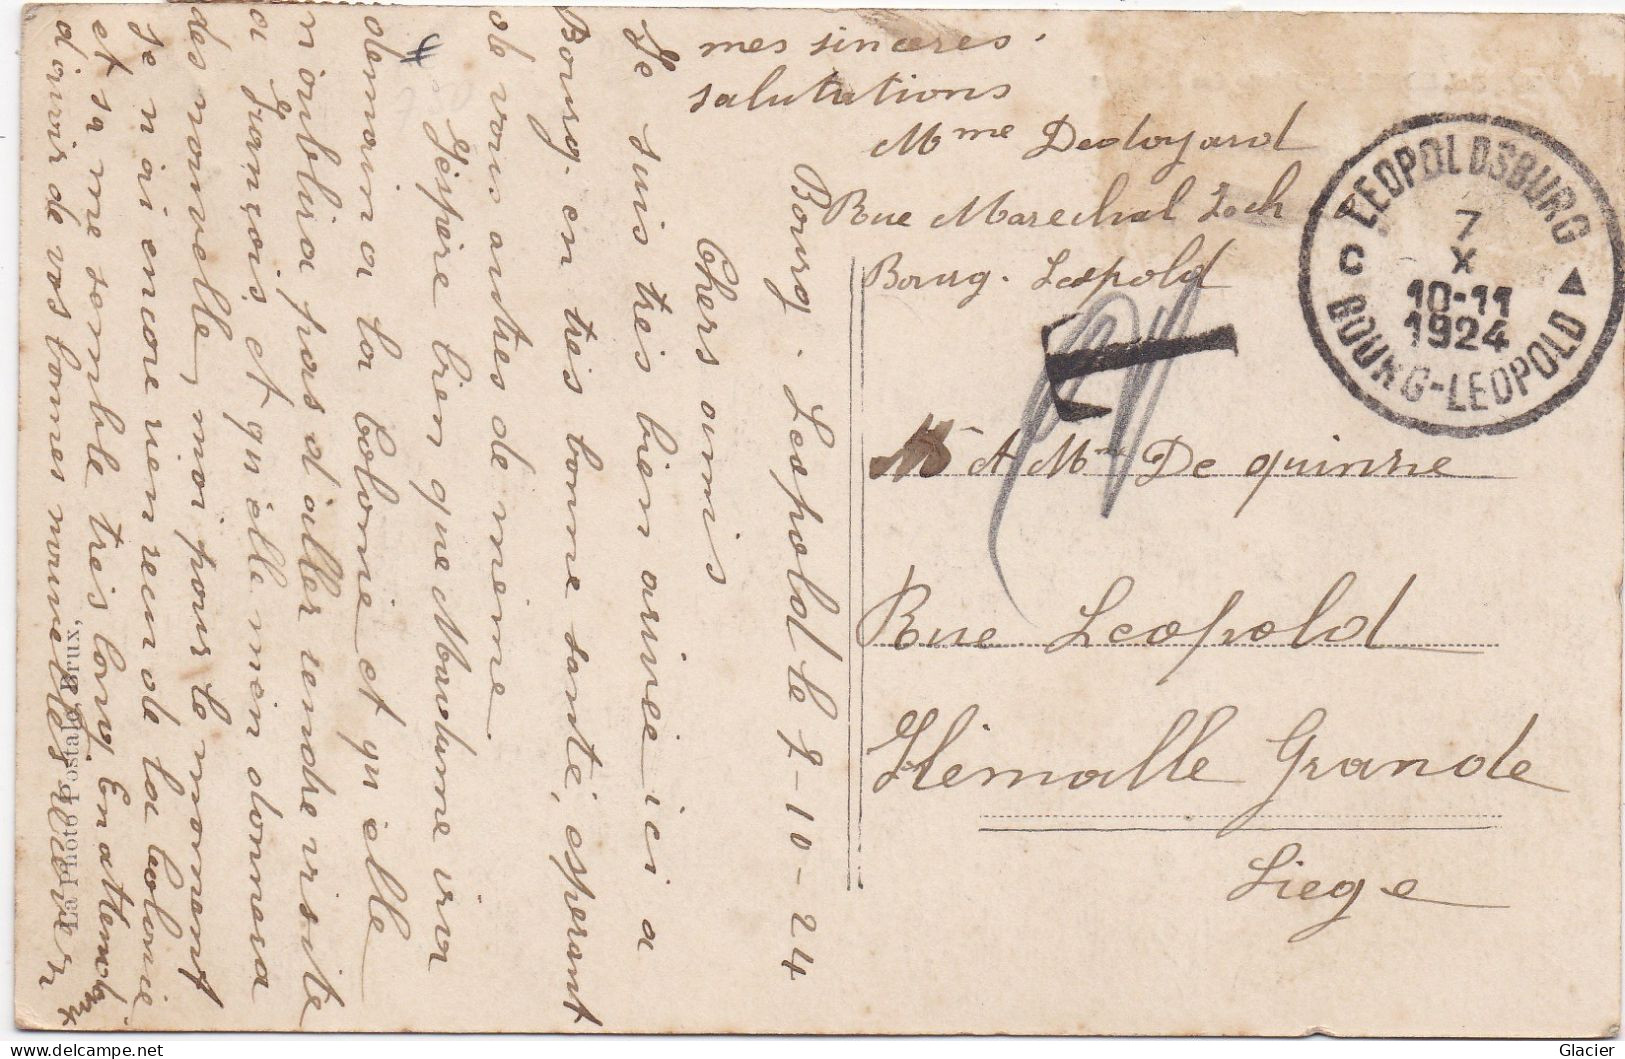 Bourg. Leopold le 7-10-24
Chers amis
Je suis très bien arrivée ici a
Bourg. en très bonne santé, esperant
de vous autres de même.
J'éspère bien que Madame ira
demain a la Colonie et qu'elle
n'oublira pas d'aller rendre visite
a François et qu'elle m'en donnera
des nouvelle, moi pour le moment
je n'ai encore rien reçu de la Colonie
et sa me semble très long. En attendant
d'avoir de vos bonnes nouvelles
mes sincères
salutations
Mme Dedoyard
Rue Marechal Foch
Bourg. Leopold
LEOPOLDSBURG
C
7
X
10-11
1924
BOURG-LEOPOLD
T
Mr et Mme De quinze
Rue Leopold
Flémalle Grande
Liege
La Photo Postale, Brux,
Glacier